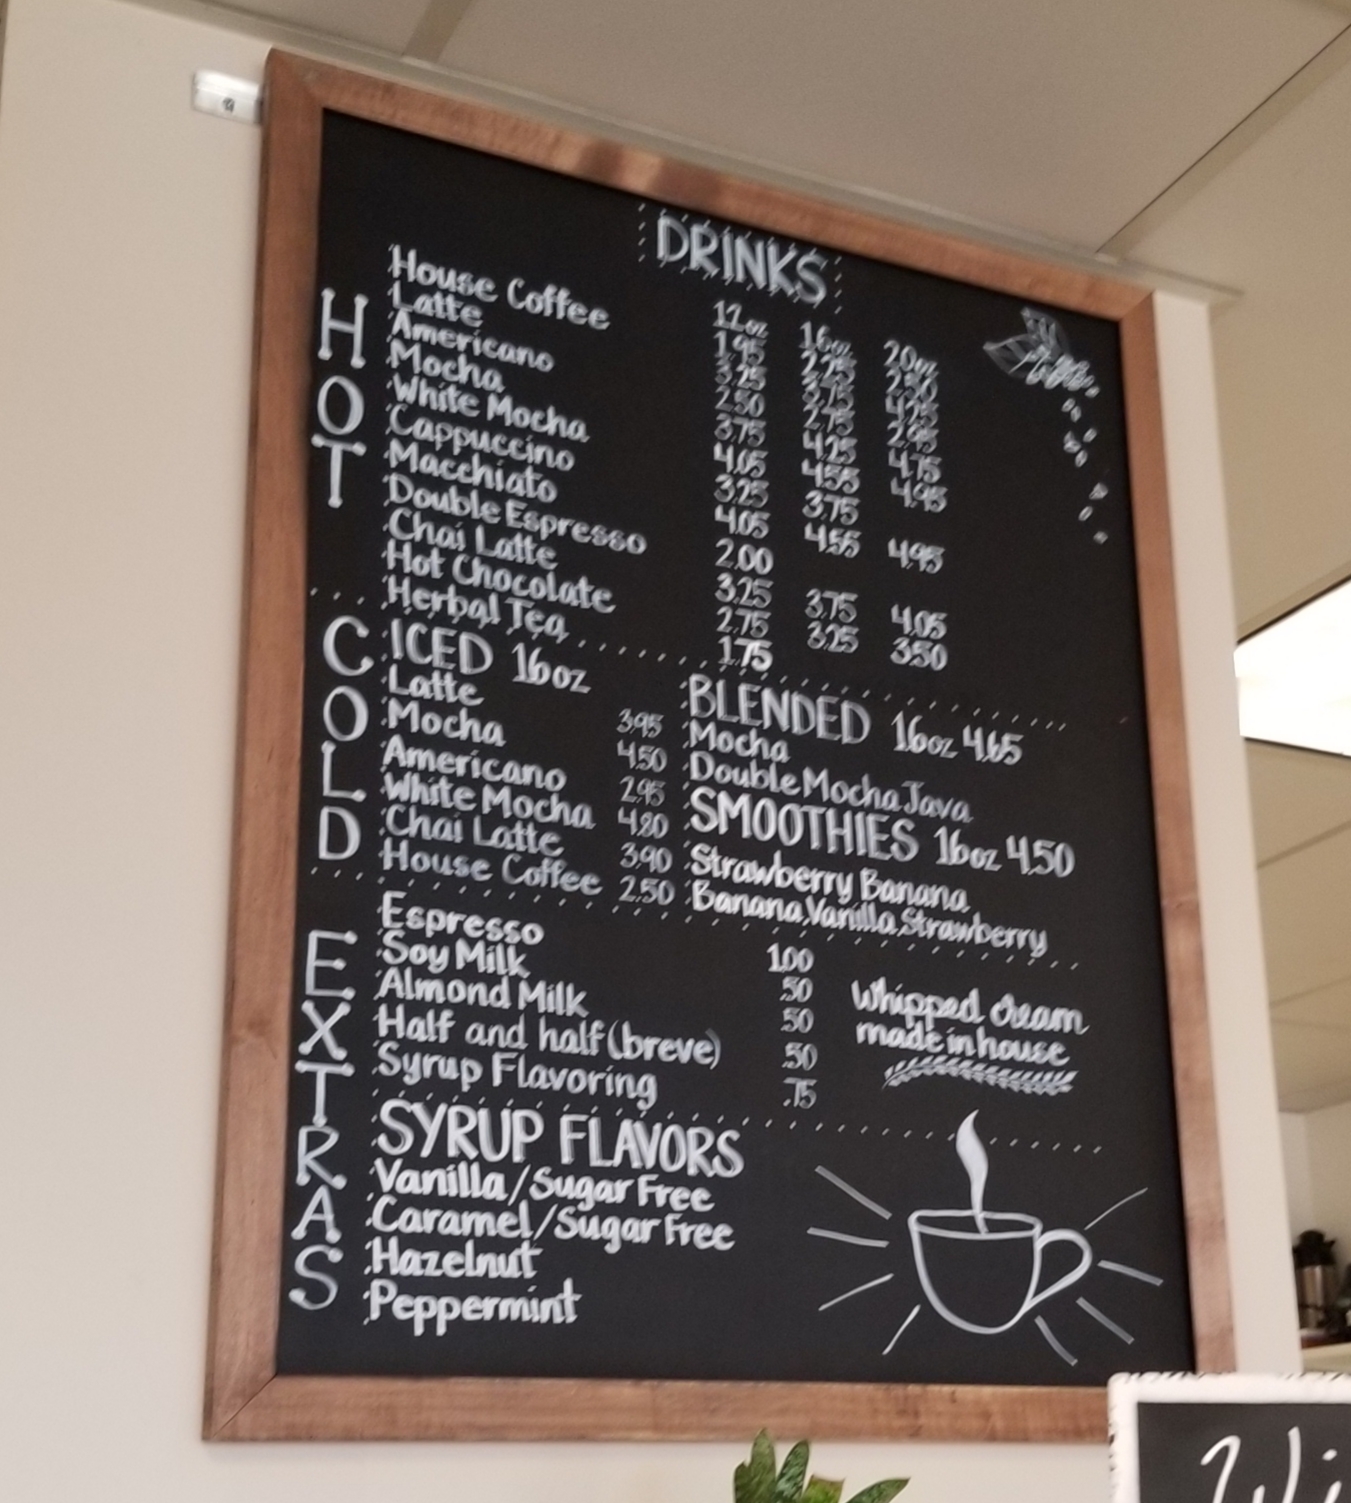 DRINKS
12oz 16oz 20oz
HOT
House Coffee 1.95 2.25 2.50
Latte 3.25 3.75 4.25
Americano 2.50 2.75 2.95
Mocha 3.75 4.25 4.75
White Mocha 4.05 4.55 4.95
Cappuccino 3.25 3.75
Macchiato 4.05 4.55 4.95
Double Espresso 2.00
Chai Latte 3.25 3.75 4.05
Hot Chocolate 2.75 3.25 3.50
Herbal Tea 1.75
COLD
ICED 16oz
Latte 3.95
Mocha 4.50
Americano 2.95
White Mocha 4.80
Chai Latte 3.90
House Coffee 2.50
BLENDED 16oz 4.65
Mocha
Double Mocha Java
SMOOTHIES 16oz 4.50
Strawberry Banana
Banana, Vanilla, Strawberry
EXTRAS
Espresso 1.00
Soy Milk .50
Almond Milk .50
Half and half (breve) .50
Syrup Flavoring .75
Whipped cream
made in house
SYRUP FLAVORS
Vanilla/Sugar Free
Caramel/Sugar Free
Hazelnut
Peppermint